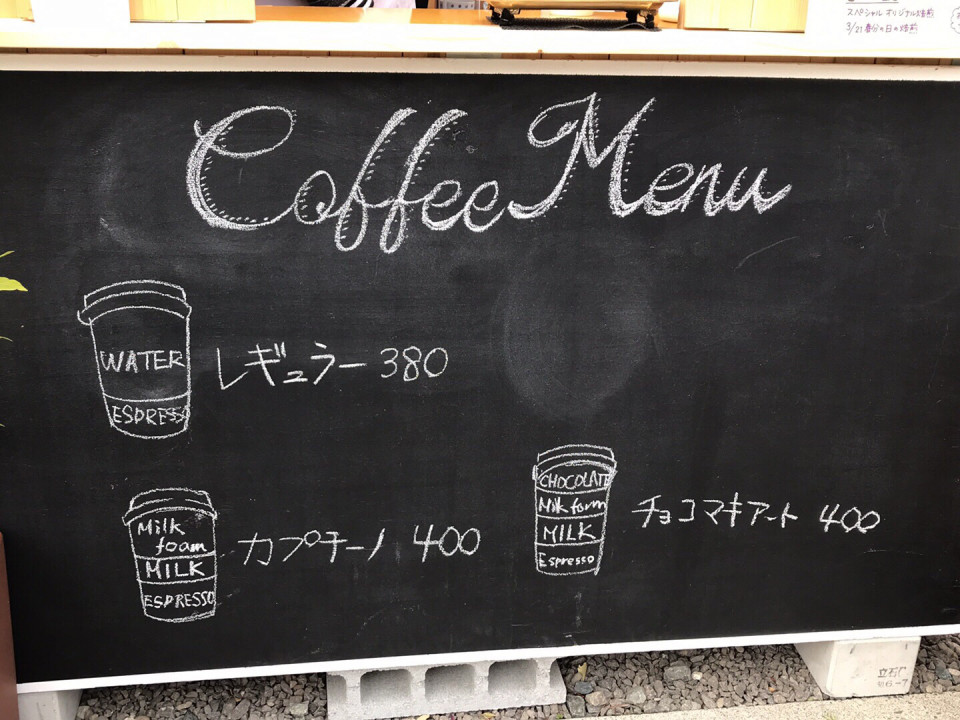 スペシャル オリジナル焙煎
3/21 春分の日の焙煎
Coffee Menu
WATER
ESPRESSO
レギュラー 380
Milk
foam
MILK
ESPRESSO
カプチーノ 400
CHOCOLATE
Milk foam
MILK
Espresso
チョコマキアート 400